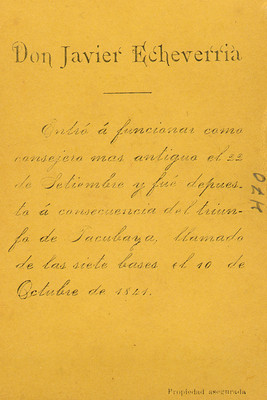 Don Javier Echeverria
Entró á funcionar como
consejero mas antiguo el 22
de Setiembre y fué depues-
to á consecuencia del triun-
fo de Tacubaya, llamado
de las siete bases el 10 de
Octubre de 1841.
OZH
Propiedad asegurada